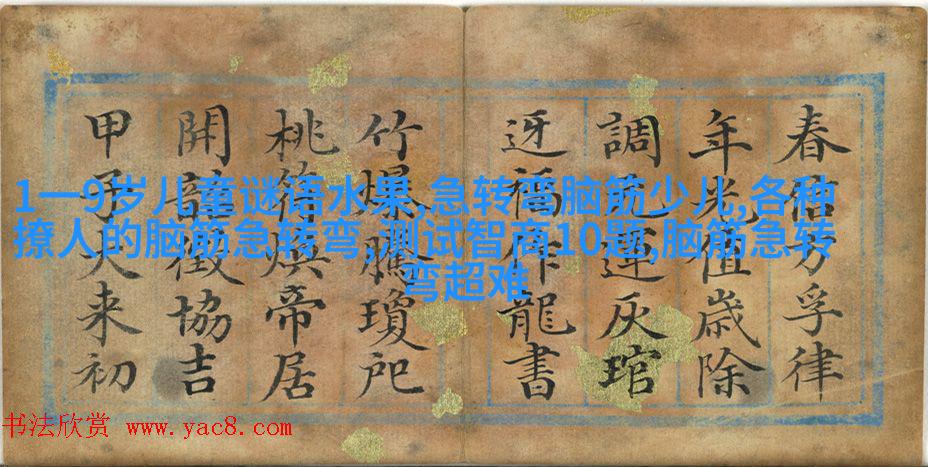 春信方孚律
年光值歲除
調元運灰琯
迓福作龍書
竹爆騰瓊戺
桃符煥帝居
開韶徵協吉
甲子大来初
1一9岁儿童谜语水果,急转弯脑筋少儿,各种
撩人的脑筋急转弯,测试智商10题,脑筋急转
弯超难
书法欣赏 www.yac8.com